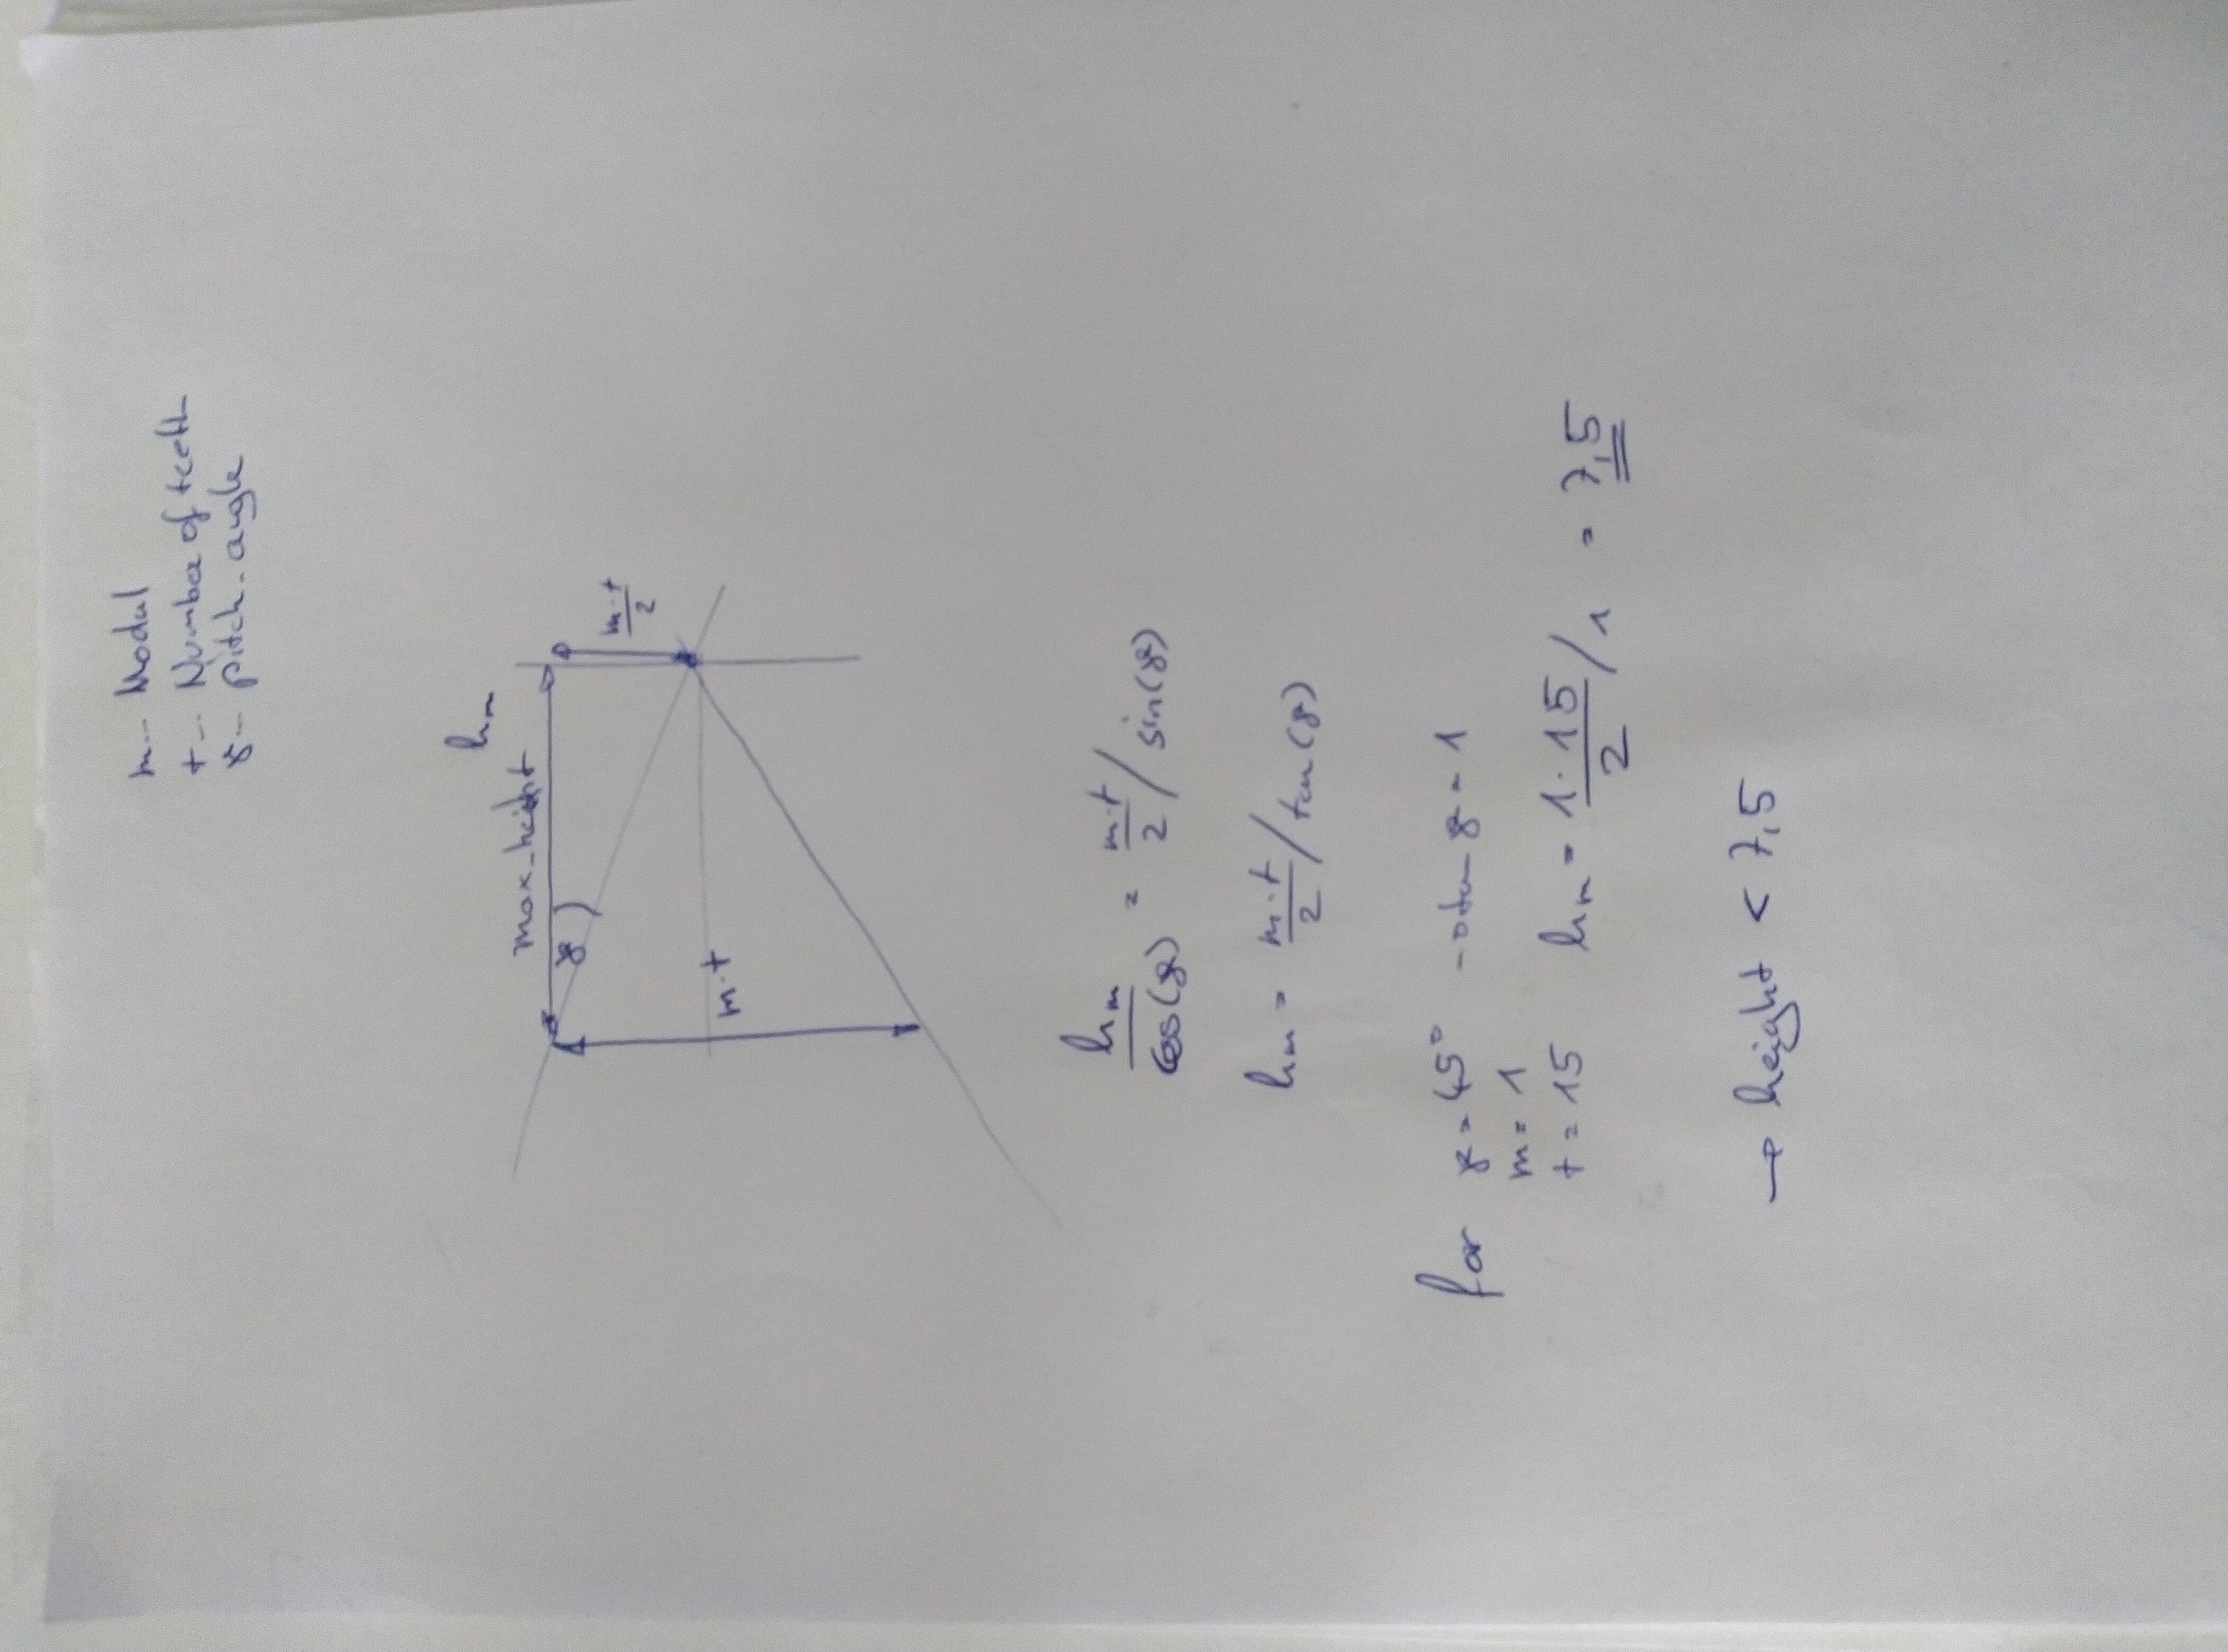 m-- Modul
t-- Number of teeth
γ-- pitch-angle
hm
max-heiht
γ
m·t/2
m·t
hm/cos(γ) = m·t/2 / sin(γ)
hm = m·t/2 / tan(γ)
for γ = 45° → tan γ = 1
m = 1
t = 15 hm = 1·15/2 / 1 = 7,5
→ height < 7,5